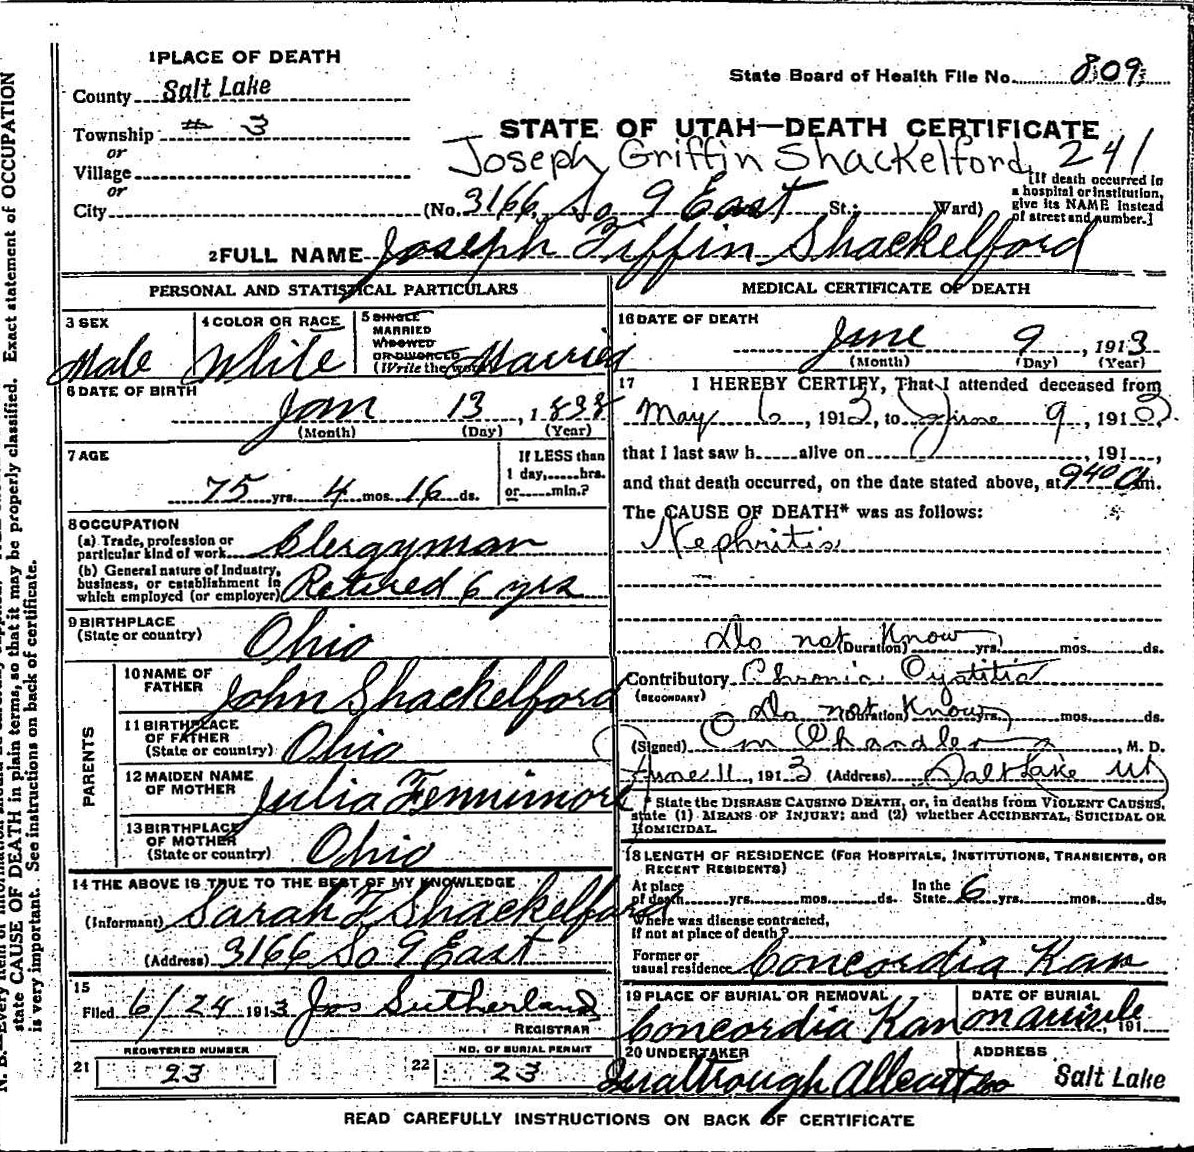 1 PLACE OF DEATH
County Salt Lake
Township # 3
or
Village
or
City
State Board of Health File No. 809
STATE OF UTAH—DEATH CERTIFICATE
Joseph Griffin Shackelford 241
(No. 3166 So 9 East St.; Ward)
[If death occurred in a hospital or institution, give its NAME instead of street and number.]
2 FULL NAME Joseph Tiffin Shackelford
PERSONAL AND STATISTICAL PARTICULARS
3 SEX
Male
4 COLOR OR RACE
White
5 SINGLE
MARRIED
WIDOWED
OR DIVORCED
(Write the word) Married
6 DATE OF BIRTH
Jan 13, 1838
(Month) (Day) (Year)
7 AGE
75 yrs. 4 mos. 16 ds.
If LESS than
1 day, hrs.
or min.?
8 OCCUPATION
(a) Trade, profession or
particular kind of work Clergyman
(b) General nature of Industry,
business, or establishment in
which employed (or employer) Retired 6 yrs
9 BIRTHPLACE
(State or country) Ohio
PARENTS
10 NAME OF
FATHER John Shackelford
11 BIRTHPLACE
OF FATHER
(State or country) Ohio
12 MAIDEN NAME
OF MOTHER Julia Fennimore
13 BIRTHPLACE
OF MOTHER
(State or country) Ohio
14 THE ABOVE IS TRUE TO THE BEST OF MY KNOWLEDGE
(Informant) Sarah F Shackelford
(Address) 3166 So 9 East
15
Filed 6/24 1913 Jos Sutherland
REGISTRAR
REGISTERED NUMBER
21 23
NO. OF BURIAL PERMIT
22 23
MEDICAL CERTIFICATE OF DEATH
16 DATE OF DEATH
June 9, 1913
(Month) (Day) (Year)
17 I HEREBY CERTIFY, That I attended deceased from
May 6, 1913, to June 9, 1913.
that I last saw h alive on , 191 ,
and that death occurred, on the date stated above, at 940 am.
The CAUSE OF DEATH* was as follows:
Nephritis
Do not Know (Duration) yrs. mos. ds.
Contributory Chronic Cystitis
(SECONDARY)
Do not Know (Duration) yrs. mos. ds.
(Signed) Chandler, M. D.
June 11, 1913 (Address) Salt Lake Ut
* State the DISEASE CAUSING DEATH, or, in deaths from VIOLENT CAUSES,
state (1) MEANS OF INJURY; and (2) whether ACCIDENTAL, SUICIDAL OR
HOMICIDAL.
18 LENGTH OF RESIDENCE (FOR HOSPITALS, INSTITUTIONS, TRANSIENTS, OR
RECENT RESIDENTS)
At place
of death yrs. mos. ds. In the
State 6 yrs. mos. ds.
Where was disease contracted,
If not at place of death?
Former or
usual residence Concordia Kan
19 PLACE OF BURIAL OR REMOVAL
Concordia Kan
DATE OF BURIAL
, 191
20 UNDERTAKER
ADDRESS
Salt Lake
READ CAREFULLY INSTRUCTIONS ON BACK OF CERTIFICATE
state CAUSE OF DEATH in plain terms, so that it may be properly classified. Exact statement of OCCUPATION
is very important. See instructions on back of certificate.